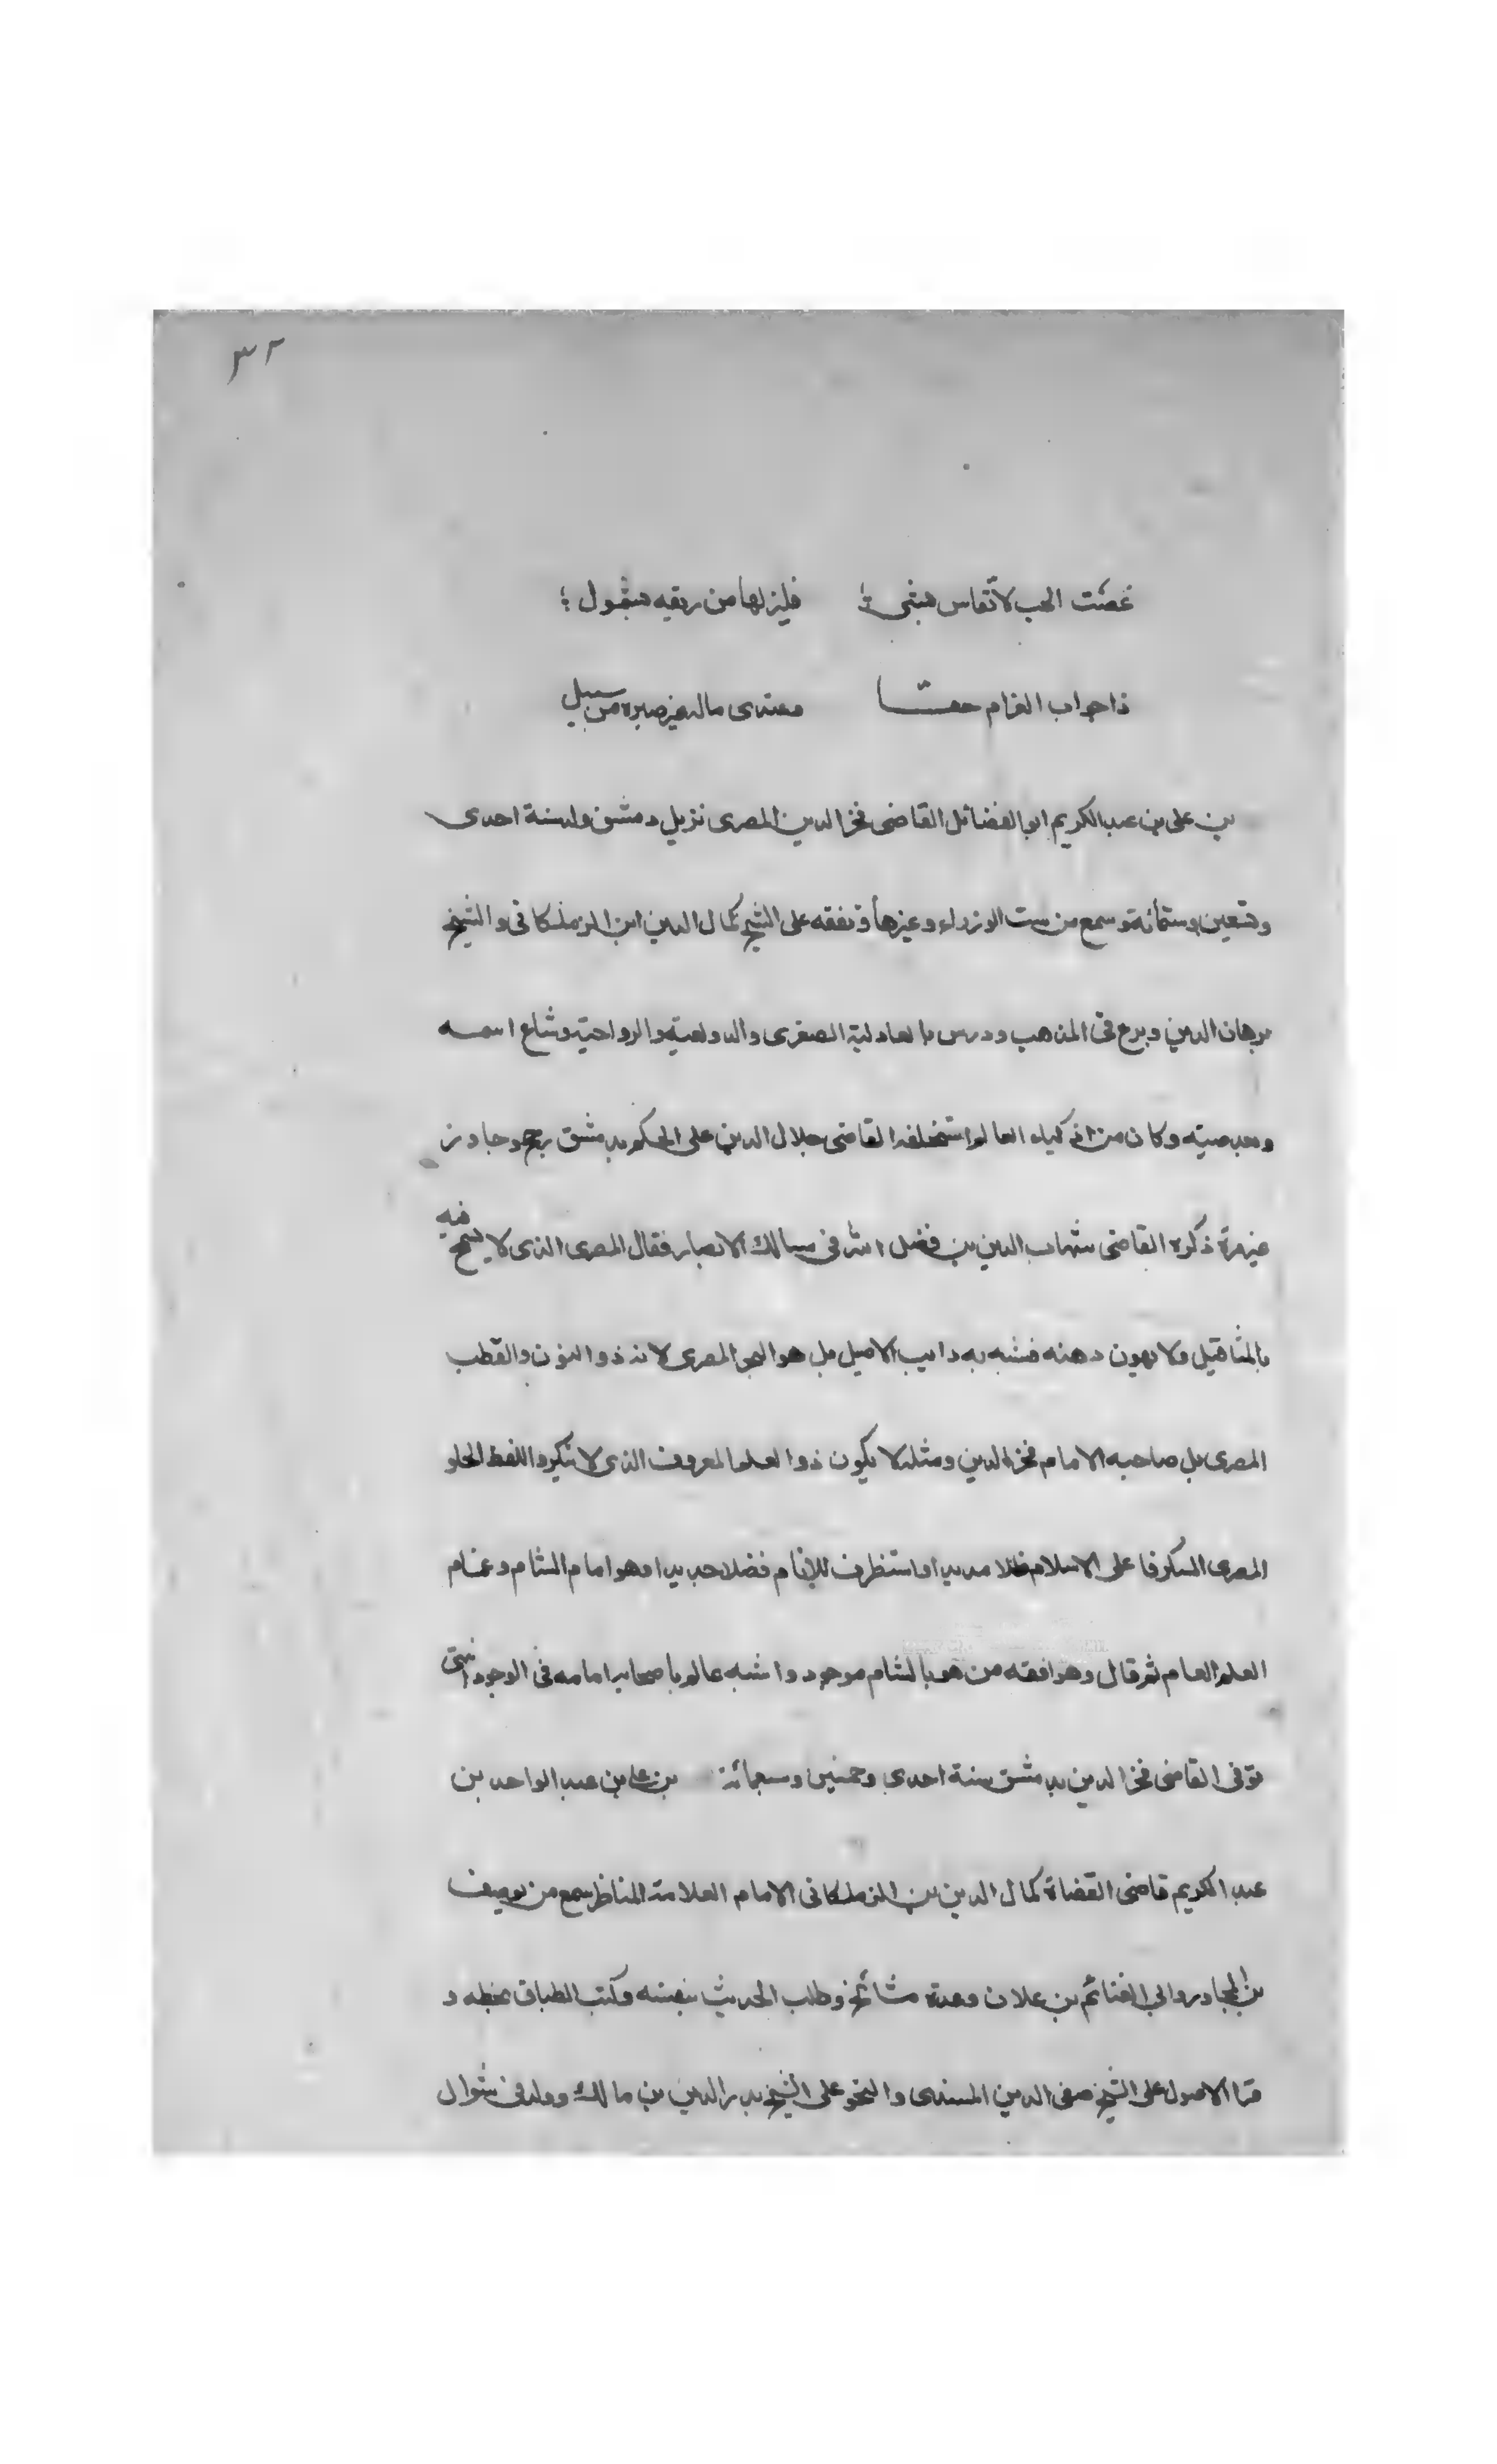 ٣٢
غصت الحب لا تقاس بشى ؛ فليز لها من ريقه بقبول ؛
ذا جواب الغرام حقا وعندى ماله غير صبره من سبيل
بن على بن عبد الكريم ابو الفضائل القاضى فخر الدين المصرى نزيل دمشق ولد سنة احدى
وتسعين وستمأئة وسمع من ست الوزراء وغيرها وتفقه على الشيخ كمال الدين ابن الزملكانى والشيخ
برهان الدين وبرع فى المذهب ودرس بالعادلية الصغرى والدولعية والرواحية وشاع اسمه
وبعد صيته وكان من اذكياء العالم استخلفه القاضى جلال الدين على الحكم بدمشق وحج وجاور
غير مرة ذكره القاضى شهاب الدين بن فضل الله فى مسالك الابصار فقال المصرى الذى لا يسمح فيه
بالمثاقيل ولا يهون دهنه فشبه به دايب الاصيل بل هو البحر المصرى لانه ذو النون والقطب
المصرى بل صاحبه الامام فخر الدين ومثله لا يكون ذو العلم المعروف الذى لا ينكر واللفظ الحلو
المصرى السكر فا على الاسلام ظلا مديدا واستظرف للانام فضلا جديدا وهو امام الشام وغمام
العلم العام ثم قال وهو افقه من هو بالشام موجود واشبه عالم باصحاب امامه فى الوجود انتهى
توفى القاضى فخر الدين بدمشق سنة احدى وخمسين وسبعمائة بن على بن عبد الواحد بن
عبد الكريم قاضى القضاة كمال الدين بن الزملكانى الامام العلامة المناظر سمع من يوسف
بن المجاور وابي الغنائم بن علان وعدة مشائخ وطلب الحديث بنفسه وكتب الطباق بخطه و
قرا الاصول على الشيخ صفى الدين الهندى والنحو على الشيخ بدر الدين بن مالك وولد فى شوال